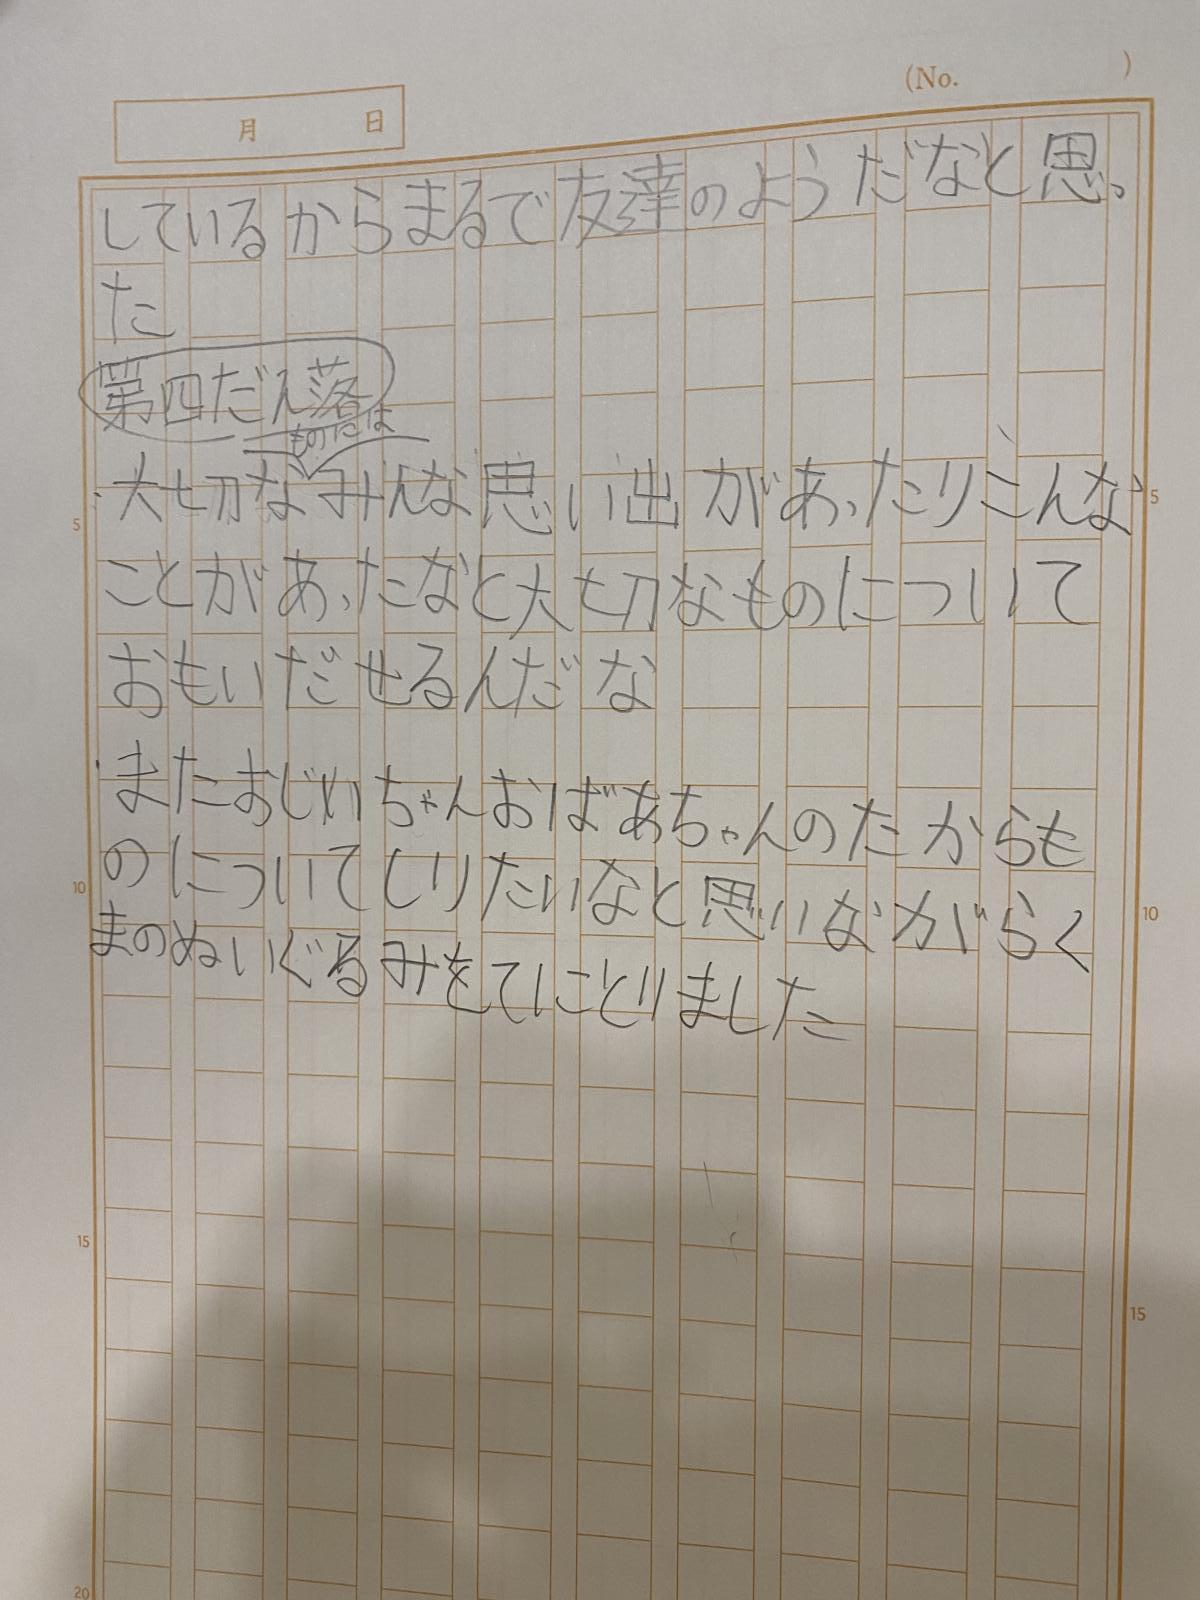 (No. )
月 日
しているからまるで友達のようだなと思っ
た
第四だん落
ものには
・大切なみんな思い出があったりこんな
ことがあったなと大切なものについて
おもいだせるんだな
・またおじいちゃんおばあちゃんのたからも
のについてしりたいなと思いながらく
まのぬいぐるみをてにとりました
5
5
10
10
15
15
20